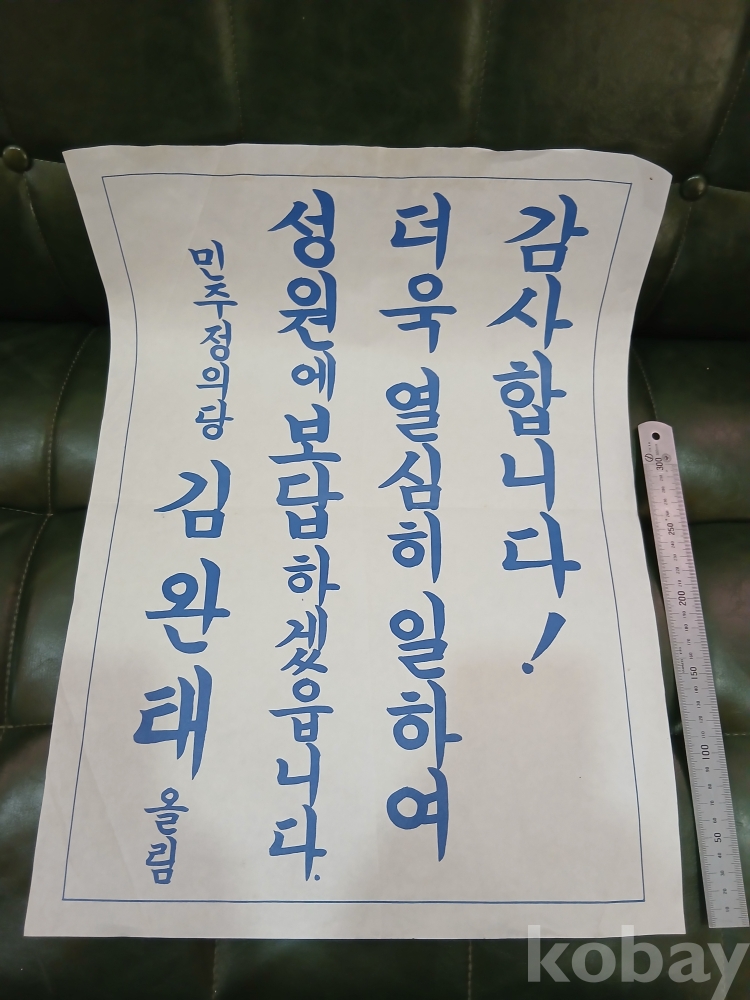 감사합니다!
더욱 열심히 일하여
성원에 보답하겠읍니다.
민주정의당 김완태 올림
300
250
200
150
100
50
kobay